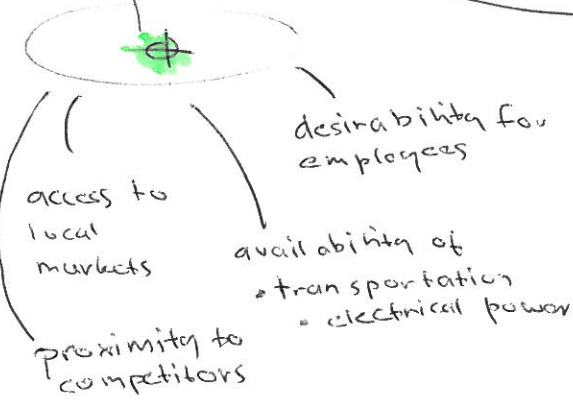 desirability for
employees
access to
local
markets
availability of
• transportation
• electrical power
proximity to
competitors